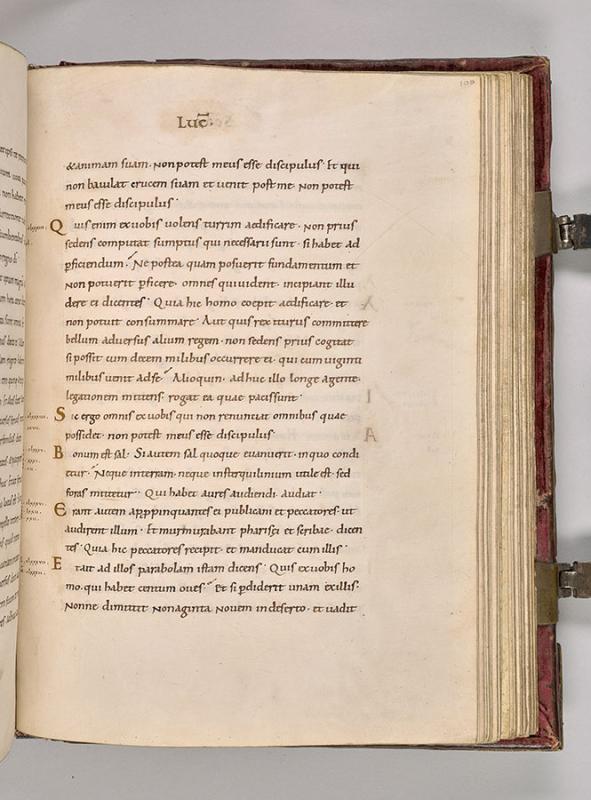 108
Luc̄.
&animam suam. non potest meus esse discipulus. Et qui
non baiulat crucem suam et uenit post me. non potest
meus esse discipulus.
Quis enim ex uobis uolens turrim aedificare. non prius
sedens computat sumptus qui necessarii sunt. si habet ad
p̄ficiendum. Ne postea quam posuerit fundamentum et
non potuerit p̄ficere. omnes qui uident. incipiant illu
dere ei dicentes. Quia hic homo coepit aedificare. et
non potuit consummare. Aut quis rex iturus committere
bellum aduersus alium regem. non sedens prius cogitat
si possit cum decem milibus occurrere ei. qui cum uiginti
milibus uenit ad se. Alioquin. adhuc illo longe agente.
legationem mittens. rogat ea quae pacis sunt.
Sic ergo omnis ex uobis qui non renuntiat omnibus quae
possidet. non potest meus esse discipulus.
Bonum est sal. Si autem sal quoque euanuerit. in quo condi
etur. Neque in terram. neque in sterquilinium utile est. sed
foras mittetur. Qui habet aures audiendi. audiat.
Erant autem app̄pinquantes ei publicani et peccatores. ut
audirent illum. Et murmurabant pharisei et scribae. dicen
tes. Quia hic peccatores recipit. et manducat cum illis.
Et ait ad illos parabolam istam dicens. Quis ex uobis ho
mo. qui habet centum oues. Et si p̄diderit unam ex illis.
Nonne dimittit nonaginta nouem in deserto. et uadit